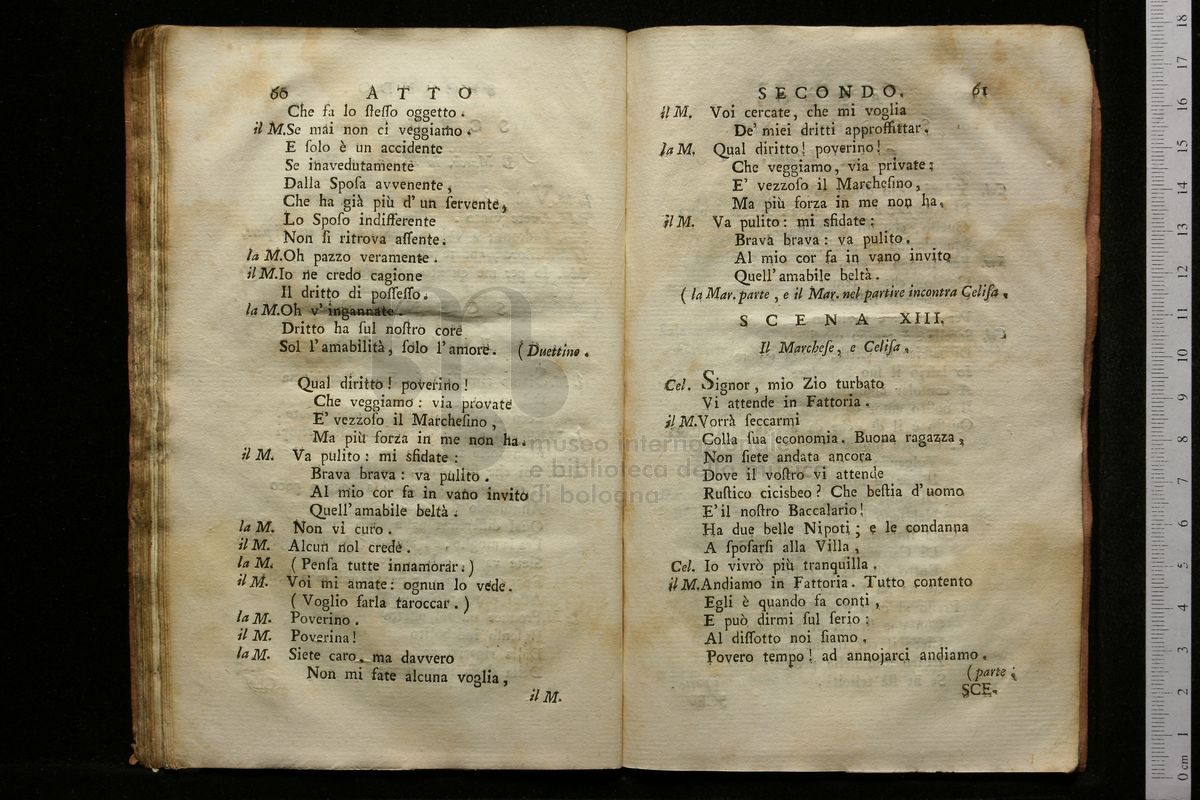 60 ATTO
Che fa lo ſteſſo oggetto.
il M. Se mai non ci veggiamo.
E ſolo è un accidente
Se inavedutamente
Dalla Spoſa avvenente,
Che ha già più d'un ſervente,
Lo Spoſo indifferente
Non ſi ritrova aſſente.
la M. Oh pazzo veramente.
il M. Io ne credo cagione
Il dritto di poſſeſſo.
la M. Oh v'ingannate.
Dritto ha ſul noſtro core
Sol l'amabilità, ſolo l'amore. (Duettino.
Qual diritto! poverino!
Che veggiamo: via provate
E' vezzoſo il Marcheſino,
Ma più forza in me non ha.
il M. Va pulito: mi sfidate:
Brava brava: va pulito.
Al mio cor fa in vano invito
Quell'amabile beltà.
la M. Non vi curo.
il M. Alcun nol crede.
la M. (Penſa tutte innamorar.)
il M. Voi mi amate: ognun lo vede.
(Voglio farla taroccar.)
la M. Poverino.
il M. Poverina!
la M. Siete caro, ma davvero
Non mi fate alcuna voglia,
il M.
SECONDO. 61
il M. Voi cercate, che mi voglia
De' miei dritti approffittar.
la M. Qual diritto! poverino!
Che veggiamo, via private:
E' vezzoſo il Marcheſino,
Ma più forza in me non ha.
il M. Va pulito: mi sfidate:
Brava brava: va pulito.
Al mio cor fa in vano invito
Quell'amabile beltà.
(la Mar. parte, e il Mar. nel partire incontra Celiſa.
SCENA XIII.
Il Marcheſe, e Celiſa.
Cel. Signor, mio Zio turbato
Vi attende in Fattoria.
il M. Vorrà ſeccarmi
Colla ſua economia. Buona ragazza,
Non ſiete andata ancora
Dove il voſtro vi attende
Ruſtico cicisbeo? Che beſtia d'uomo
E' il noſtro Baccalario!
Ha due belle Nipoti; e le condanna
A ſpoſarſi alla Villa,
Cel. Io vivrò più tranquilla.
il M. Andiamo in Fattoria. Tutto contento
Egli è quando fa conti,
E può dirmi ſul ſerio:
Al diſſotto noi ſiamo.
Povero tempo! ad annojarci andiamo.
(parte.
SCE-
museo internazionale
e biblioteca della musica
di bologna
0 cm 1 2 3 4 5 6 7 8 9 10 11 12 13 14 15 16 17 18